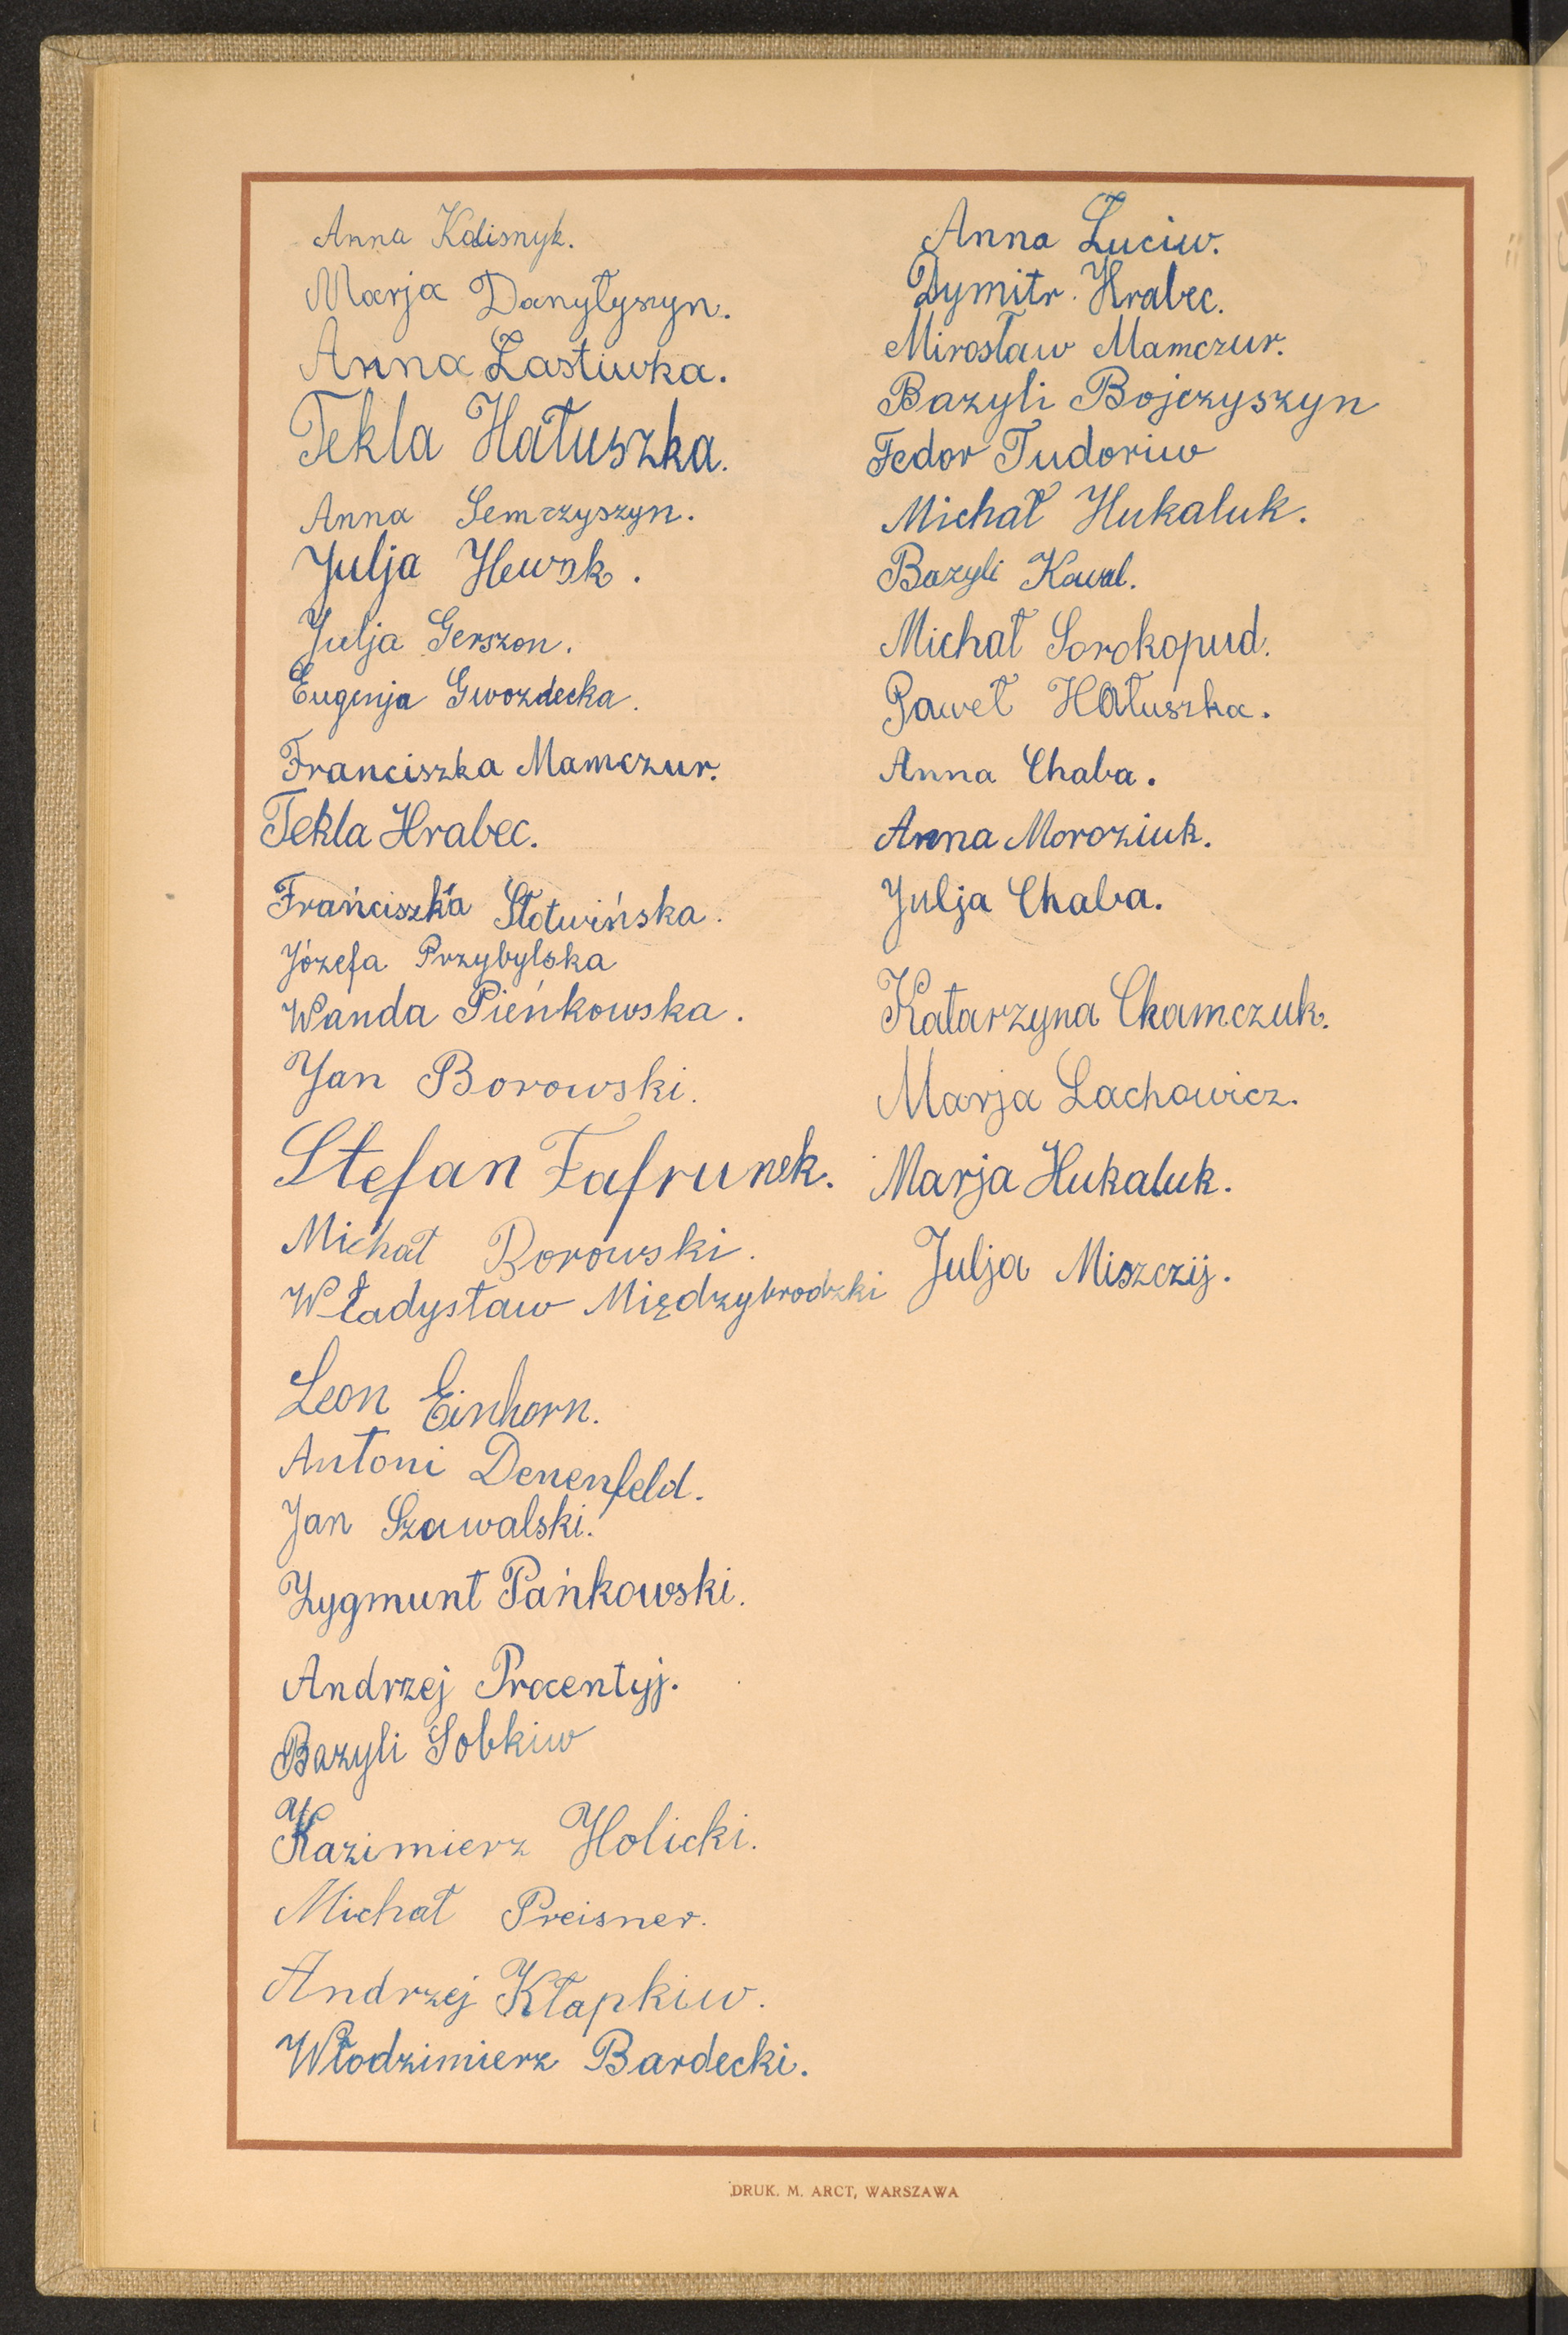 Anna Kolisnyk.
Marja Danyłyszyn.
Anna Łastiwka.
Tekla Hałuszka.
Anna Semczyszyn.
Julja
Julja Gerszon.
Eugenja Gwozdecka.
Franciszka Mamczur.
Tekla Hrabec.
Franciszka Słotwińska.
Józefa Przybylska
Wanda Pieńkowska.
Jan Borowski.
Stefan Fafrunek.
Michał Borowski.
Władysław Międzybrodzki
Leon Einhorn.
Antoni Denenfeld.
Jan Szawalski.
Zygmunt Pańkowski.
Andrzej Procentyj.
Bazyli Sobkiw
Kazimierz Holicki.
Michał Preisner.
Andrzej Kłapkiw.
Włodzimierz Bardecki.
Anna Łuciw.
Dymitr Hrabec.
Mirosław Mamczur.
Bazyli Bojczyszyn
Fedor Tudoriw
Michał Hukaluk.
Bazyli Kowal.
Michał Sorokopud.
Paweł Hałuszka.
Anna Chaba.
Anna Moroziuk.
Julja Chaba.
Katarzyna Ckamczuk.
Marja Lachowicz.
Marja Hukaluk.
Julja Miszczij.
DRUK. M. ARCT, WARSZAWA